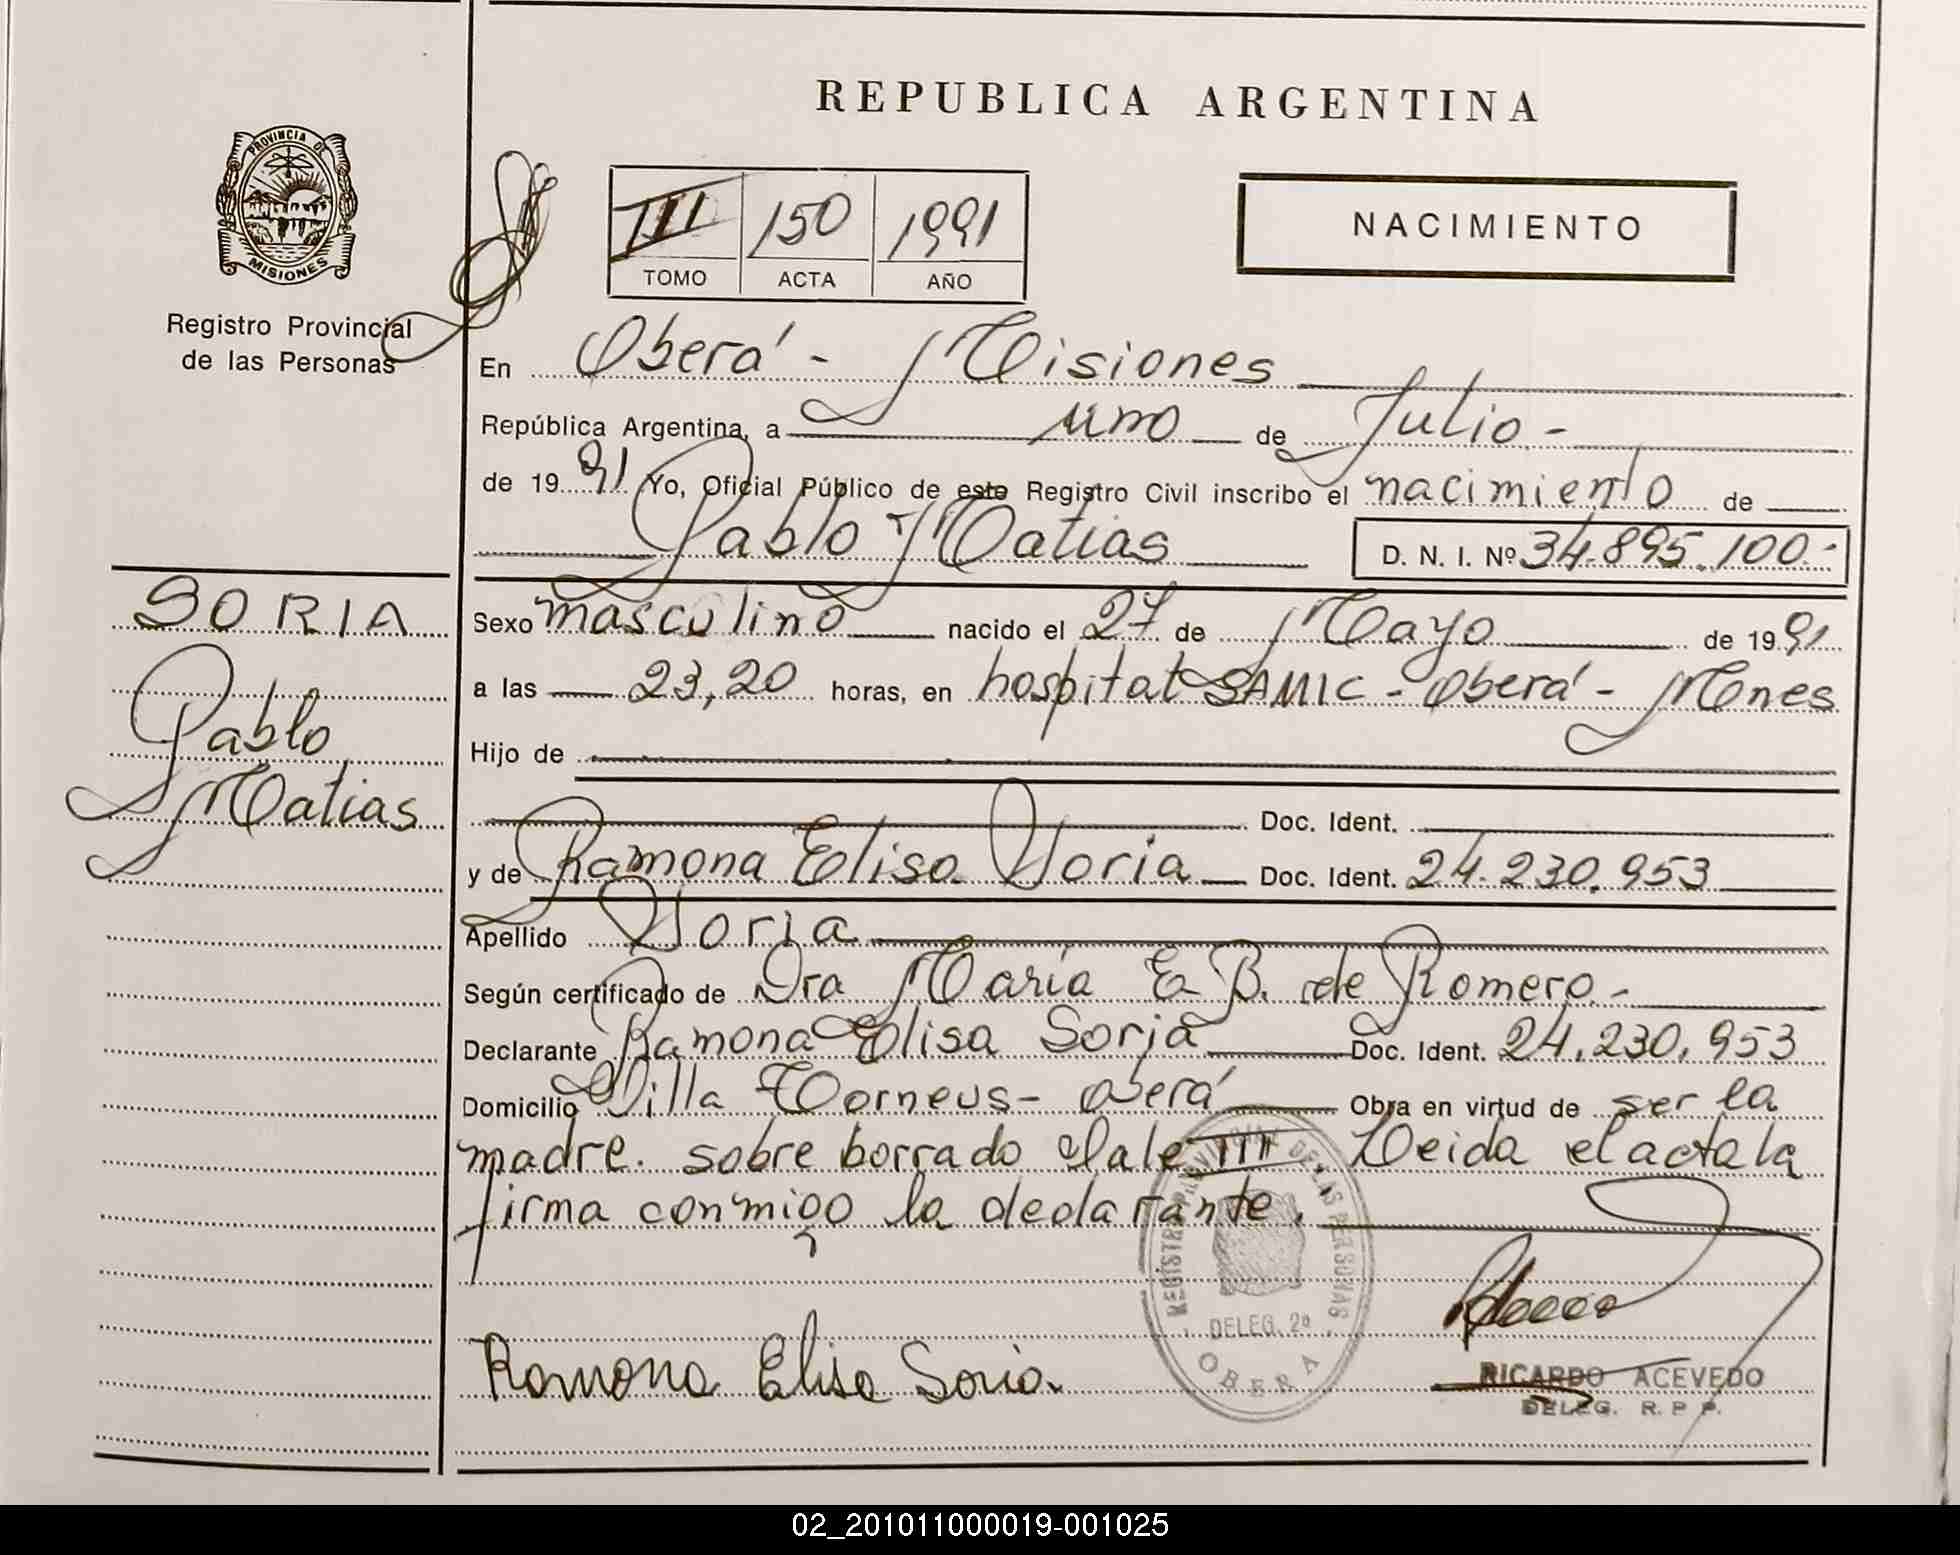 REPUBLICA ARGENTINA
PROVINCIA DE
MISIONES
Registro Provincial
de las Personas
III 150 1991
TOMO ACTA AÑO
NACIMIENTO
En Oberá - Misiones
República Argentina, a uno de Julio -
de 1991 Yo, Oficial Público de este Registro Civil inscribo el nacimiento de
Pablo Matias D. N. I. Nº 34.895.100.-
SORIA
Pablo
Matias
Sexo masculino nacido el 27 de Mayo de 1991
a las 23,20 horas, en hospital SAMIC - Oberá - Mnes
Hijo de
Doc. Ident.
y de Ramona Elisa Soria Doc. Ident. 24.230.953
Apellido Soria
Según certificado de Dra Maria E B. de Romero -
Declarante Ramona Elisa Soria Doc. Ident. 24.230.953
Domicilio Villa Oberá Obra en virtud de ser la
madre. sobre borrado Vale III Leida el acta la
firma conmigo la declarante.
REGISTRO PROVINCIAL DE LAS PERSONAS
DELEG. 2ª
OBERA
Ramona Elisa Soria
RICARDO ACEVEDO
DELEG. R. P P.
02_201011000019-001025